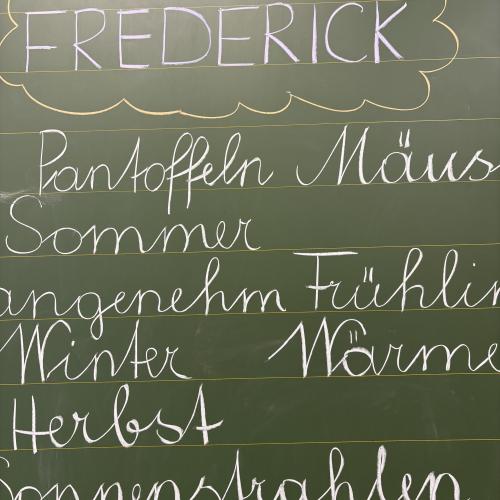 FREDERICK
Pantoffeln Mäus
Sommer
angenehm Frühlin
Winter Wärme
Herbst
Sonnenstrahlen